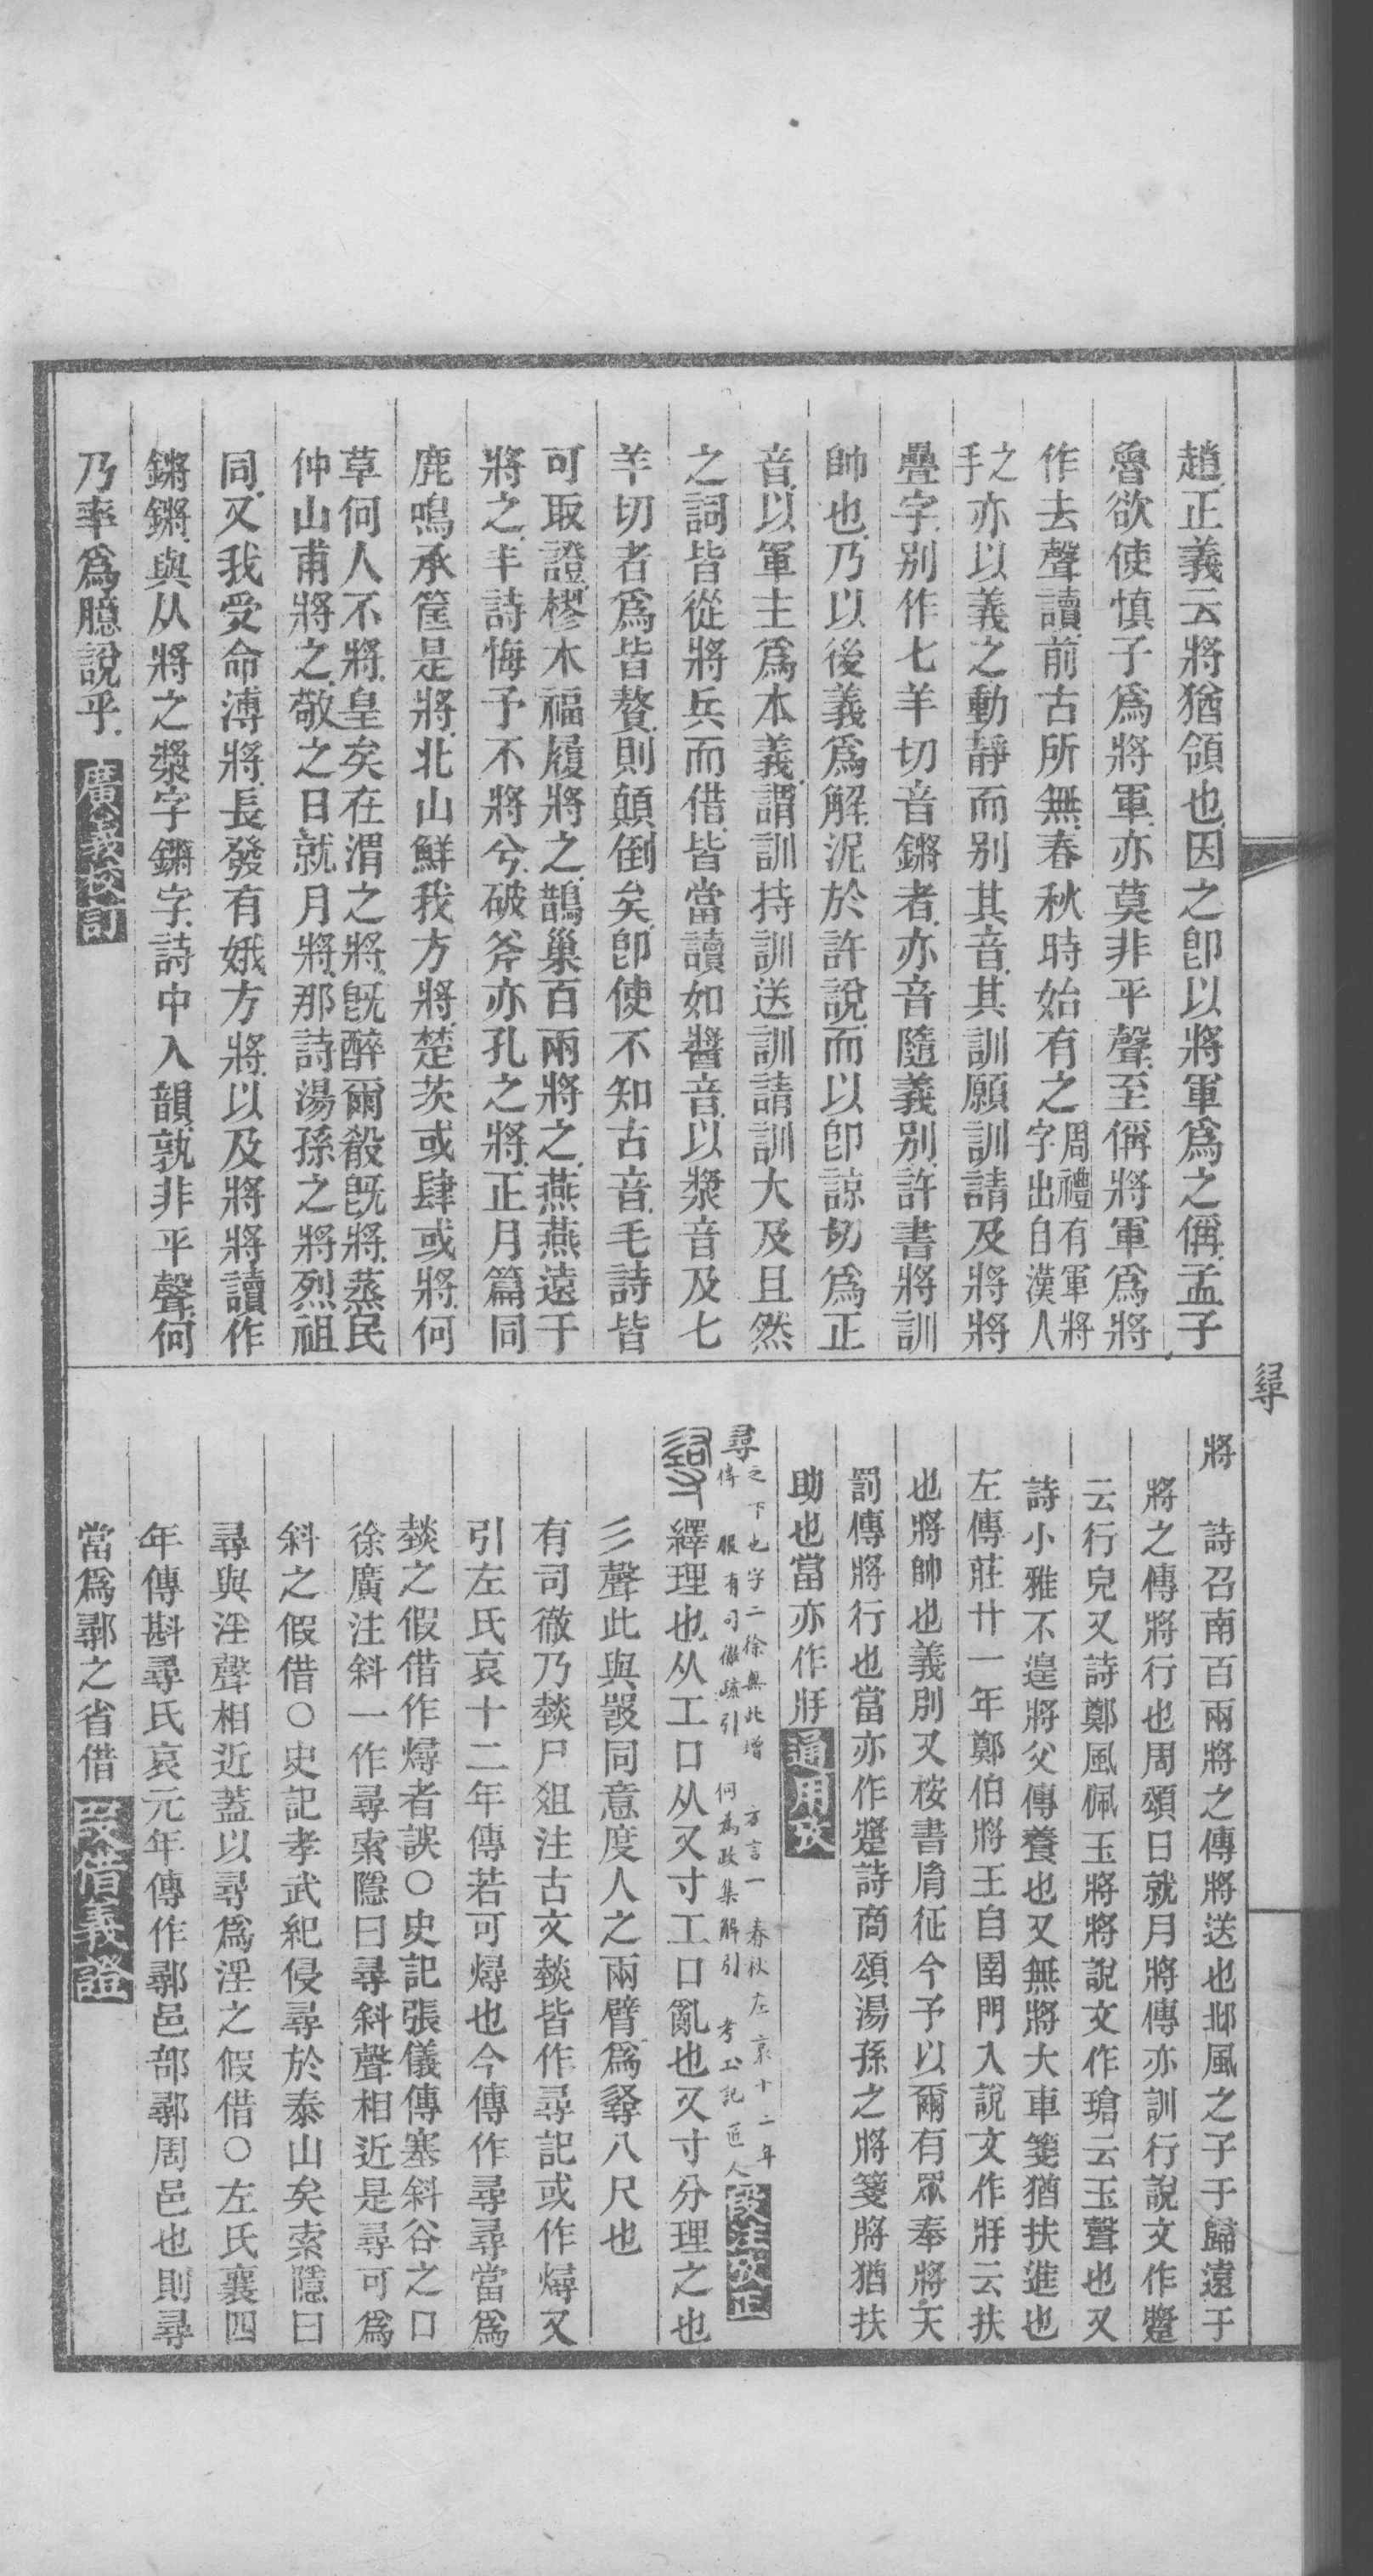 趙.正義云將猶領也.因之卽以將軍爲之偁.孟子
魯欲使愼子爲將軍.亦莫非平聲.至偁將軍爲將
作去聲讀.前古所無.春秋時始有之周禮有軍將字出自漢人
之手亦以義之動靜而別其音.其訓願訓請及將將
疊字.別作七羊切音鏘者.亦音隨義別.許書將訓
帥也.乃以後義爲解.泥於許說.而以卽諒切爲正
音.以軍主爲本義.謂訓持訓送訓請訓大及且然
之詞.皆從將兵而借.皆當讀如醬音.以漿音及七
羊切者爲皆贅.則顛倒矣.卽使不知古音.毛詩皆
可取證.樛木福履將之.鵲巢百兩將之.燕燕遠于
將之.丰詩悔予不將兮.破斧亦孔之將.正月篇同
鹿鳴承筐是將.北山鮮我方將.楚茨或肆或將.何
草何人不將.皇矣在渭之將.旣醉爾殽旣將.蒸民
仲山甫將之.敬之日就月將.那詩湯孫之將.烈祖
同.又我受命溥將.長發有娀方將.以及將將讀作
鏘鏘.與从將之漿字鏘字.詩中入韻.孰非平聲.何
乃率爲臆說乎.廣義校訂
尋
將　詩召南百兩將之傳將送也邶風之子于歸遠于
將之傳將行也周頌日就月將傳亦訓行說文作𨄚
云行皃又詩鄭風佩玉將將說文作瑲云玉聲也又
詩小雅不遑將父傳養也又無將大車箋猶扶進也
左傳莊廿一年鄭伯將王自圉門入說文作㢡云扶
也將帥也義別又桉書胤征今予以爾有眾奉將天
罰傳將行也當亦作𨄚詩商頌湯孫之將箋將猶扶
助也當亦作㢡通用攷
尋之下也字二徐無此增　方言一　春秋左哀十二年傳　服　有司徹疏引　何爲政集解引　考工記匠人段注攷正
繹理也从工口从又寸工口亂也又寸分理之也
彡聲此與𤕦同意度人之兩臂爲尋八尺也
有司徹乃燅尸俎注古文燅皆作尋記或作燖又
引左氏哀十二年傳若可燖也今傳作尋尋當爲
燅之假借作燖者誤○史記張儀傳塞斜谷之口
徐廣注斜一作尋索隱曰尋斜聲相近是尋可爲
斜之假借○史記孝武紀侵尋於泰山矣索隱曰
尋與淫聲相近蓋以尋爲淫之假借○左氏襄四
年傳斟尋氏哀元年傳作鄩邑部鄩周邑也則尋
當爲鄩之省借叚借義證